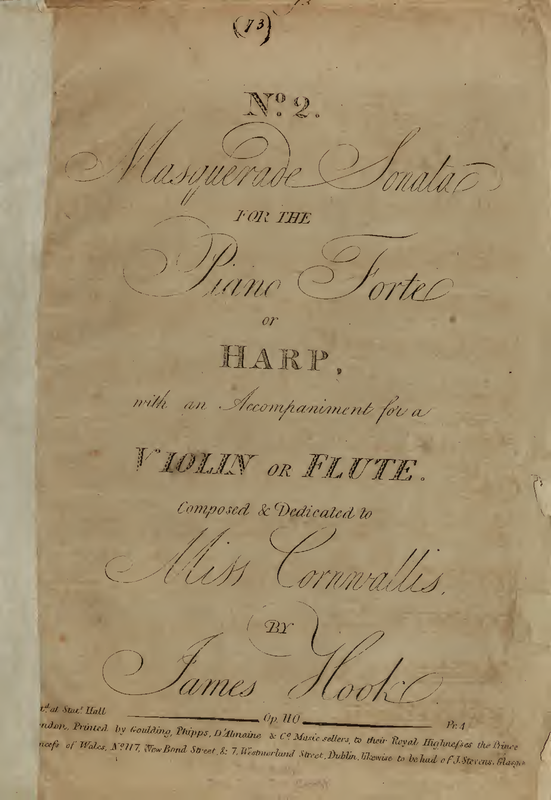 (73)
No. 2.
Masquerade Sonata
FOR THE
Piano Forte
or
HARP,
with an Accompaniment for a
VIOLIN OR FLUTE.
Composed & Dedicated to
Miss Cornwallis.
BY
James Hook.
at Stat.s Hall Op. 110 Pr. 4
London, Printed by Goulding, Phipps, D'Almaine & Co. Music sellers, to their Royal Highnesses the Prince
of Wales, No. 117, New Bond Street, & 7, Westmorland Street, Dublin, likewise to be had of J. Stevens, Glasgo